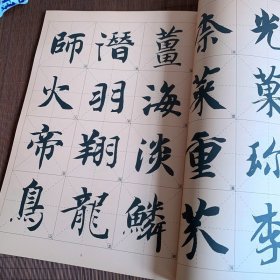 光菓珍李
柰菜重芥
薑海淡鱗
潛羽翔龍
師火帝鳥